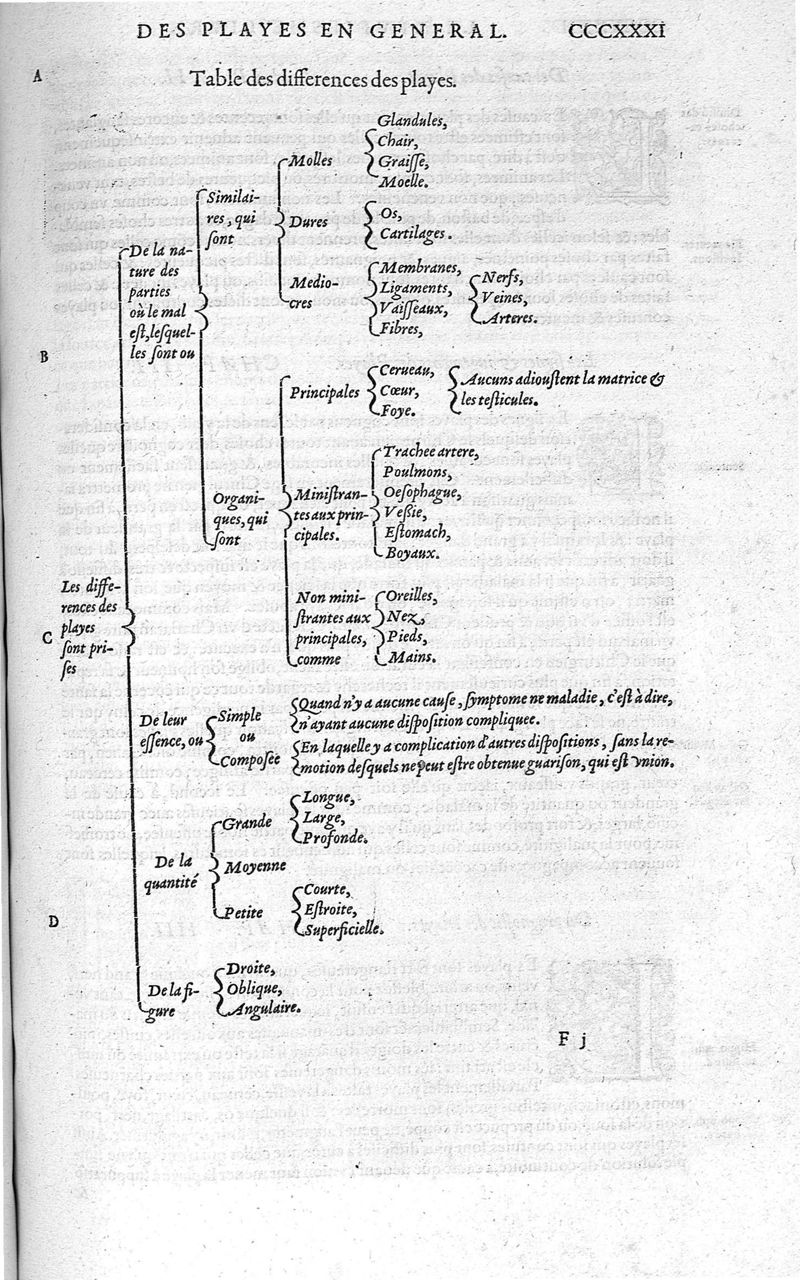 DES PLAYES EN GENERAL. CCCXXXI
A
Table des differences des playes.
Les diffe-
rences des
playes
sont pri-
ses
De la na-
ture des
parties
où le mal
est, lesquel-
les sont ou
Similai-
res, qui
sont
Molles
Glandules,
Chair,
Graisse,
Moelle.
Dures
Os,
Cartilages.
Medio-
cres
Membranes,
Ligaments,
Vaisseaux,
Fibres,
Nerfs,
Veines,
Arteres.
B
Organi-
ques, qui
sont
Principales
Cerueau,
Cœur,
Foye.
Aucuns adioustent la matrice &
les testicules.
Ministran-
tes aux prin-
cipales.
Trachee artere,
Poulmons,
Oesophague,
Vessie,
Estomach,
Boyaux.
Non mini-
strantes aux
principales,
comme
Oreilles,
Nez,
Pieds,
Mains.
C
De leur
essence, ou
Simple
ou
Composée
Quand n'y a aucune cause, symptome ne maladie, c'est à dire,
n'ayant aucune disposition compliquee.
En laquelle y a complication d'autres dispositions, sans la re-
motion desquels ne peut estre obtenue guarison, qui est vnion.
De la
quantité
Grande
Longue,
Large,
Profonde.
Moyenne
Petite
Courte,
Estroite,
Superficielle.
D
De la fi-
gure
Droite,
Oblique,
Angulaire.
F j